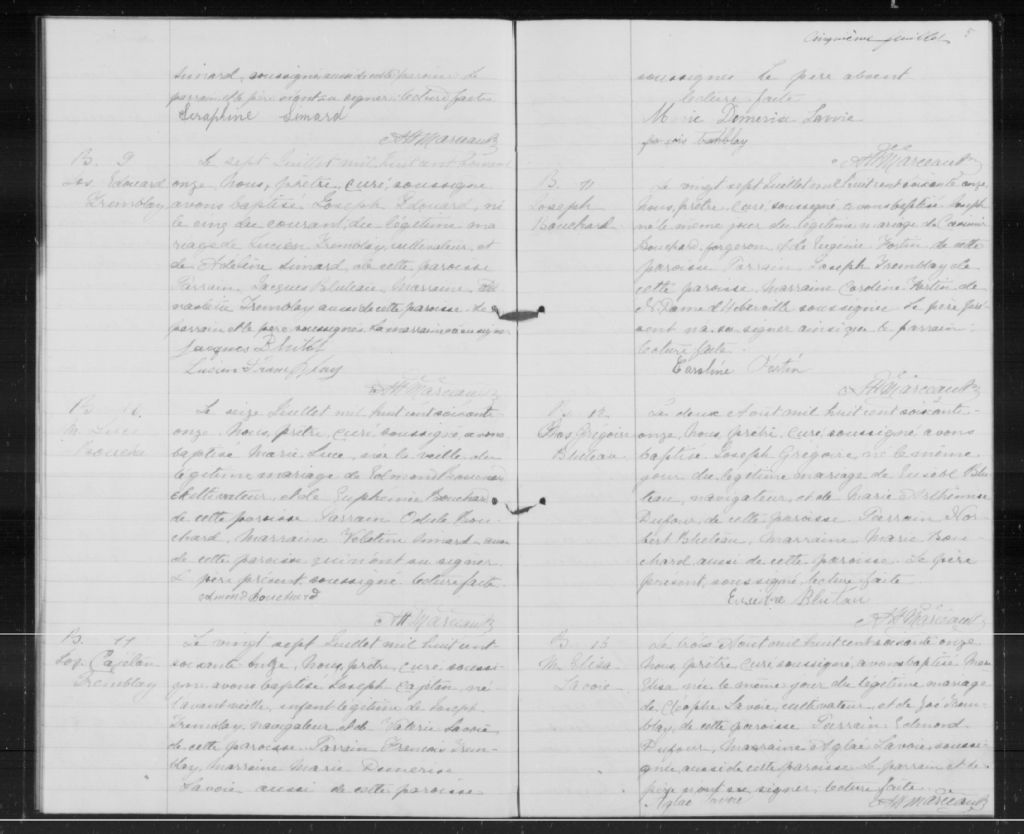 Simard, soussigné aussi de cette paroisse. Le
parrain et le père n'ont su signer. Lecture faite
Seraphine Simard
AH Marceau Ptr
B. 9
Jos Edouard
Tremblay
Le sept Juillet mil huit cent soixante
onze, Nous, prêtre, curé, soussigné
avons baptisé, Joseph Edouard, né
le cinq du courant, du légitime ma
riage de Lucien Tremblay, cultivateur, et
de Adeline Simard, de cette paroisse
Parrain Jacques Bluteau, Marraine,
Tremblay aussi de cette paroisse. Le
parrain et le père soussignés. La marraine n'a su signer
Jacques Blutot
Lucien Tremblay
AH Marceau Ptr
B.
M. Luce
Bouchard
Le seize Juillet mil huit cent soixante
onze, Nous, prêtre, curé soussigné avons
baptisé Marie Luce, née la veille, du
légitime mariage de Edmond Bouchard
cultivateur, et de Euphemie Bouchard
de cette paroisse. Parrain Bou-
chard, Marraine Simard, aussi
de cette paroisse qui n'ont su signer.
Le père présent soussigné lecture faite.
Edmond Bouchard
AH Marceau Ptr
B. 11
Jos. Cajetan
Tremblay
Le vingt sept Juillet mil huit cent
soixante onze, Nous, prêtre, curé soussi-
gné avons baptisé Joseph Cajetan, né
l'avant veille, enfant légitime de Joseph
Tremblay, navigateur et de Valerie Lavoie
de cette paroisse. Parrain Francois Trem-
blay, Marraine Marie Domerise
Lavoie aussi de cette paroisse
Cinquième feuillet 5
soussignés Le père absent
lecture faite
Marie Domerise Lavoie
francois tremblay
AH Marceau Ptr
B. 11
Joseph
Bouchard
Le vingt sept Juillet mil huit cent soixante onze,
Nous, prêtre, curé, soussigné avons baptisé Joseph
né le même jour du légitime mariage de Casimir
Bouchard, forgeron, et de Eugenie Fortin de cette
paroisse Parrain Joseph Tremblay de
cette paroisse, Marraine Caroline Fortin de
N. Dame d'Heberville soussignée. Le père pré-
sent n'a su signer ainsi que le parrain.
Lecture faite.
Caroline Fortin
AH Marceau Ptr
B. 12
Jos Grégoire
Bluteau
Le deux Aout mil huit cent soixante-
onze, Nous, prêtre, curé, soussigné avons
baptisé Joseph Gregoire né le même
jour du légitime mariage de Eusèbe Blu
teau, navigateur, et de Marie Arthémise
Dufour, de cette paroisse. Parrain Nor-
bert Bluteau, Marraine Marie Bou-
chard aussi de cette paroisse. Le père
présent, soussigné, lecture faite
Eusèbe Blutau
AH Marceau Ptr
B. 13
M. Elisa
Lavoie
Le trois Aout mil huit cent soixante onze
Nous, prêtre curé soussigné, avons baptisé Marie
Elisa née le même jour du légitime mariage
de Cléophe Lavoie, cultivateur, et de Trem-
blay, de cette paroisse Parrain Edmond
Dufour, Marraine Aglaé Lavoie, soussi-
gnée aussi de cette paroisse Le parrain et le
père n'ont su signer, lecture faite
Aglaé Lavoie
AH Marceau Ptr